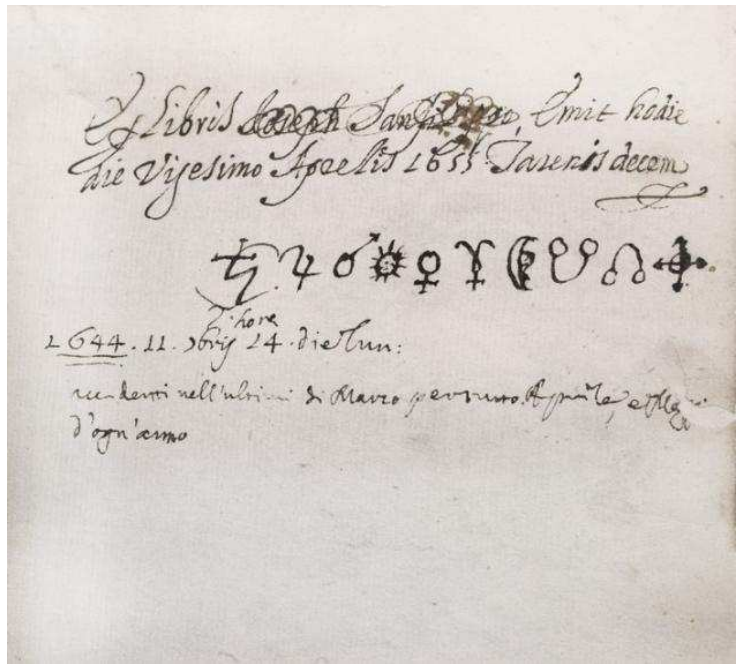 Ex Libris Joseph Emit hodie
die Vigesimo Aprelis 1655 Tarenis decem
♄ ♃ ♂ ☉ ♀ ☿ ☽ ☋ ☊
hore
1644. 11. 9bris 24. die Lun:
nell'ultimi di Marzo per tutto Aprile, e
d'ogn'anno